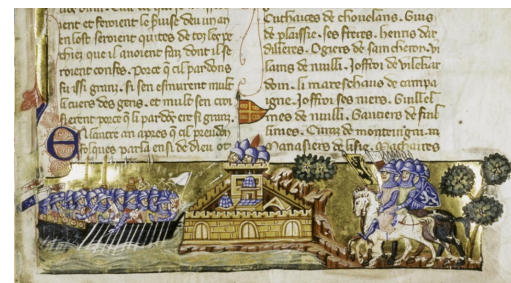 ient et feroient le deu un an
en lost seroient quites de toz lor pe
chiez que il auoient faiz dont il se
roient confes. Porce q̃ cil pardons
fu issi granz. si sen esmurent mult
li cuers des gens. et mult sen croi
sierent porce q̃ li pardõs ere si granz
En lautre an apres q̃ cil preudõ
folques parla ensi de dieu ot
de chouelans. Guis
de plaissie. ses freres. henris dar
dilieres. Ogiers de saincheron. vi
lains de nuilli. Joffroi de vilehar
doin. li mareschaus de campa
igne. Joffroi ses niers. Guillel
mes de nuilli. Gautiers de fuil
limes. de monteingni.
Manasiers de lisle. Machaires